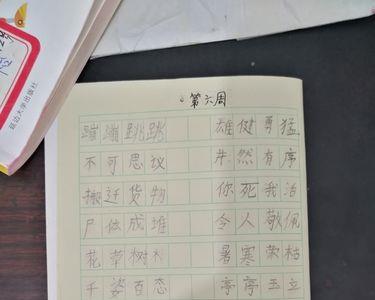 延边大学出版社
第六周
蹦蹦跳跳 雄健勇猛
不可思议 井然有序
搬迁货物 你死我活
尸体成堆 令人敬佩
花草树木 暑寒荣枯
千姿百态 亭亭玉立